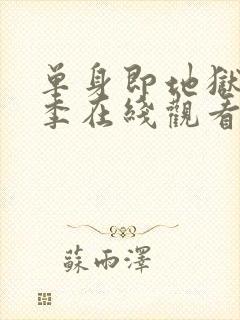 單身即地獄
季在綫觀看
蘇雨澤